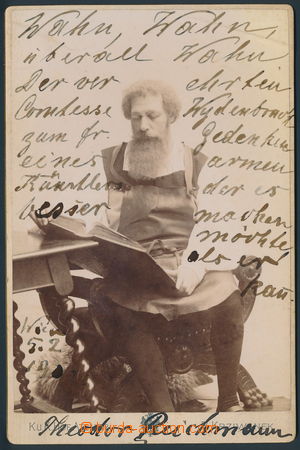 Wahn, Wahn,
überall Wahn
Der verehrten
Comtesse Wydenbruck
zum fr. Gedenken
eines armen
Künstlers der es
besser machen
möchte
als er
kan̄.
Wien
5.2.
Theodor Reichmann
burda-auction.com